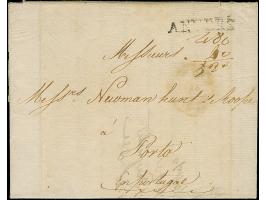 ANVERS
Messieurs
Mess.rs Newman hunt & Roope
à
Porto
en portugal